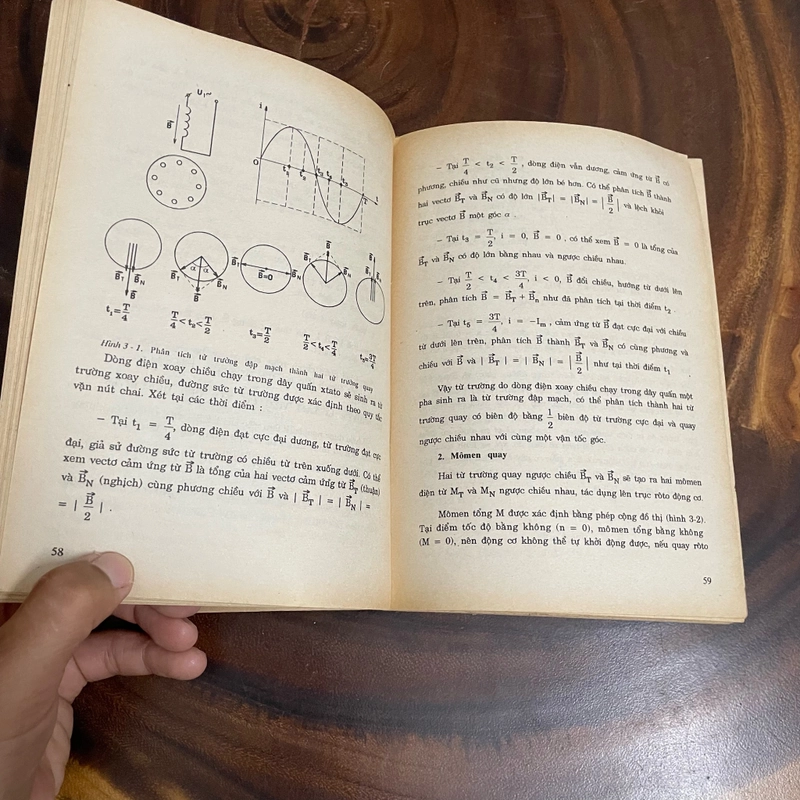 U₁~
B⃗
i
O
t₁ t₂ t₃ t₄ t₅ t
B⃗T B⃗N B⃗
B⃗T α α B⃗N B⃗
B⃗T B⃗=0 B⃗N
B⃗T B⃗ B⃗N
B⃗T B⃗ B⃗N
t₁=T/4 T/4<t₂<T/2 t₃=T/2 T/2<t₄<3T/4 t₅=3T/4
Hình 3 - 1. Phân tích từ trường đập mạch thành hai từ trường quay
Dòng điện xoay chiều chạy trong dây quấn xtato sẽ sinh ra từ
trường xoay chiều, đường sức từ trường được xác định theo quy tắc
vặn nút chai. Xét tại các thời điểm :
– Tại t₁ = T/4, dòng điện đạt cực đại dương, từ trường đạt cực
đại, giả sử đường sức từ trường có chiều từ trên xuống dưới. Có thể
xem vectơ cảm ứng từ B⃗ là tổng của hai vectơ cảm ứng từ B⃗T (thuận)
và B⃗N (nghịch) cùng phương chiều với B⃗ và | B⃗T | = | B⃗N | =
= | B⃗/2 | .
58
– Tại T/4 < t₂ < T/2 , dòng điện vẫn dương, cảm ứng từ B⃗ có
phương, chiều như cũ nhưng độ lớn bé hơn. Có thể phân tích B⃗ thành
hai vectơ B⃗T và B⃗N có độ lớn |B⃗T| = |B⃗N| = | B⃗/2 | và lệch khỏi
trục vectơ B⃗ một góc α .
– Tại t₃ = T/2, i = 0, B⃗ = 0 , có thể xem B⃗ = 0 là tổng của
B⃗T và B⃗N có độ lớn bằng nhau và ngược chiều nhau.
– Tại T/2 < t₄ < 3T/4, i < 0, B⃗ đổi chiều, hướng từ dưới lên
trên, phân tích B⃗ = B⃗T + B⃗n như đã phân tích tại thời điểm t₂ .
– Tại t₅ = 3T/4, i = –Im , cảm ứng từ B⃗ đạt cực đại với chiều
từ dưới lên trên, phân tích B⃗ thành B⃗T và B⃗N có cùng phương và
chiều với B⃗ và | B⃗T | = | B⃗N | = | B⃗/2 | như tại thời điểm t₁ .
Vậy từ trường do dòng điện xoay chiều chạy trong dây quấn một
pha sinh ra là từ trường đập mạch, có thể phân tích thành hai từ
trường quay có biên độ bằng 1/2 biên độ từ trường cực đại và quay
ngược chiều nhau với cùng một vận tốc góc.
2. Mômen quay
Hai từ trường quay ngược chiều B⃗T và B⃗N sẽ tạo ra hai mômen
điện từ MT và MN ngược chiều nhau, tác dụng lên trục rôto động cơ.
Mômen tổng M được xác định bằng phép cộng đồ thị (hình 3-2).
Tại điểm tốc độ bằng không (n = 0), mômen tổng bằng không
(M = 0), nên động cơ không thể tự khởi động được, nếu quay rôto
59